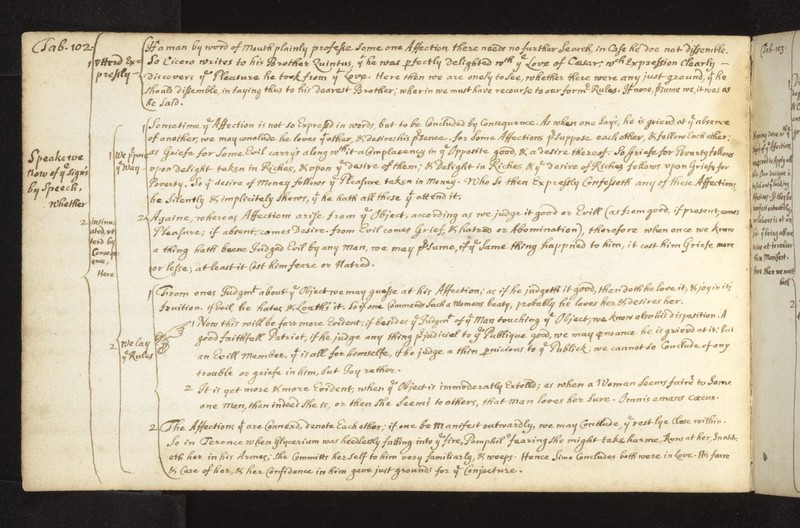 Tab. 102.
Speake we
now of ye Signs
by Speech,
whether
1 uttered Ex-
pressly
If a man by word of mouth plainly professe some one Affection there needs no further Search, in Case he doe not dissemble.
So Cicero writes to his Brother Quintus, yt he was pfectly delighted wth ye Love of Cæsar; wch Expression clearly
discovers ye Pleasure he took from yt Love. Here then we are onely to see, whether there were any just ground, yt he
should dissemble, in saying thus to his dearest Brother; wherin we must have recourse to our formr Rules. If none, psume we, it was as
he said.
2 insinu-
ated, ut-
terd by
Conseqe-
ence,
Here
1 We
ye Way
1 Sometime ye Affection is not so Expressd in words, but to be Concluded by Consequence. As when one Says, he is griev'd at ye absence
of another, we may conclude he loves yt other, & desires his psence. for some Affections psuppose each other, & follow Each other;
as Griefe for Some Evil carrys along wth it a Complacency in ye Opposite good, & a desire thereof. So Griefe for Poverty follows
upon delight taken in Riches, & upon ye desire of them; & Delight in Riches & ye desire of Riches follows upon Griefe for
Poverty. So ye desire of Money follows ye Pleasure taken in Money. Who so then Expressly Confesseth any of these Affections,
he Silently & implicitely shews, yt he hath all these yt attend it.
2 Againe, whereas Affections arise from ye Object, according as we judge it good or Evill (as from good, if present, comes
Pleasure; if absent, comes Desire. From Evil comes Grief, & hatred or Abomination), therefore when once we know
a thing hath beene Judged Evil by any man, we may psume, if ye same thing happned to him, it cost him Griefe more
or lesse; at least it Cost him feare or Hatred.
2 We lay
ye Rules
1 From ones Judgmt about ye Object we may guesse at his Affection; as if he judgeth it good, then doth he love it, & joy in its
fruition. if evil, he hates & Loaths it. So if one Commend Such a Womans beaty, probably he loves her & desires her.
1 Now this will be farr more Evident, if besides ye Judgmt of ye Man touching ye Object, we know also his disposition. A
good faithfull Patriot, if he judge any thing pjudicial to ye Publique good, we may pnounce he is grieved at it; but
an Evill Member, yt is all for himselfe, if he judge a thing pnicious to ye Publick, we cannot so Conclude of any
trouble or griefe in him, but Joy rather.
2 It is yet more & more Evident, when ye Object is immoderatly Extolled; as when a Woman Seems fairer to Some
one man, then indeed she is, or then she Seems to others, that man loves her Sure. Omnis amans cæcus.
2 The Affections yt are Connexd, denote Each other; if one be Manifest outwardly, we may Conclude, ye rest lye Close within.
So in Terence when Glycerium was heedlessly falling into ye fire, Pamphils fearing she might take harme, Runs at her, Snatch-
eth her in his Armes; She Committs her self to him very familiarly, & weeps. Hence Simo Concludes both were in Love. His feare
& Care of her, & her Confidence in him gave just grounds for ye Conjecture.
Tab. 103.